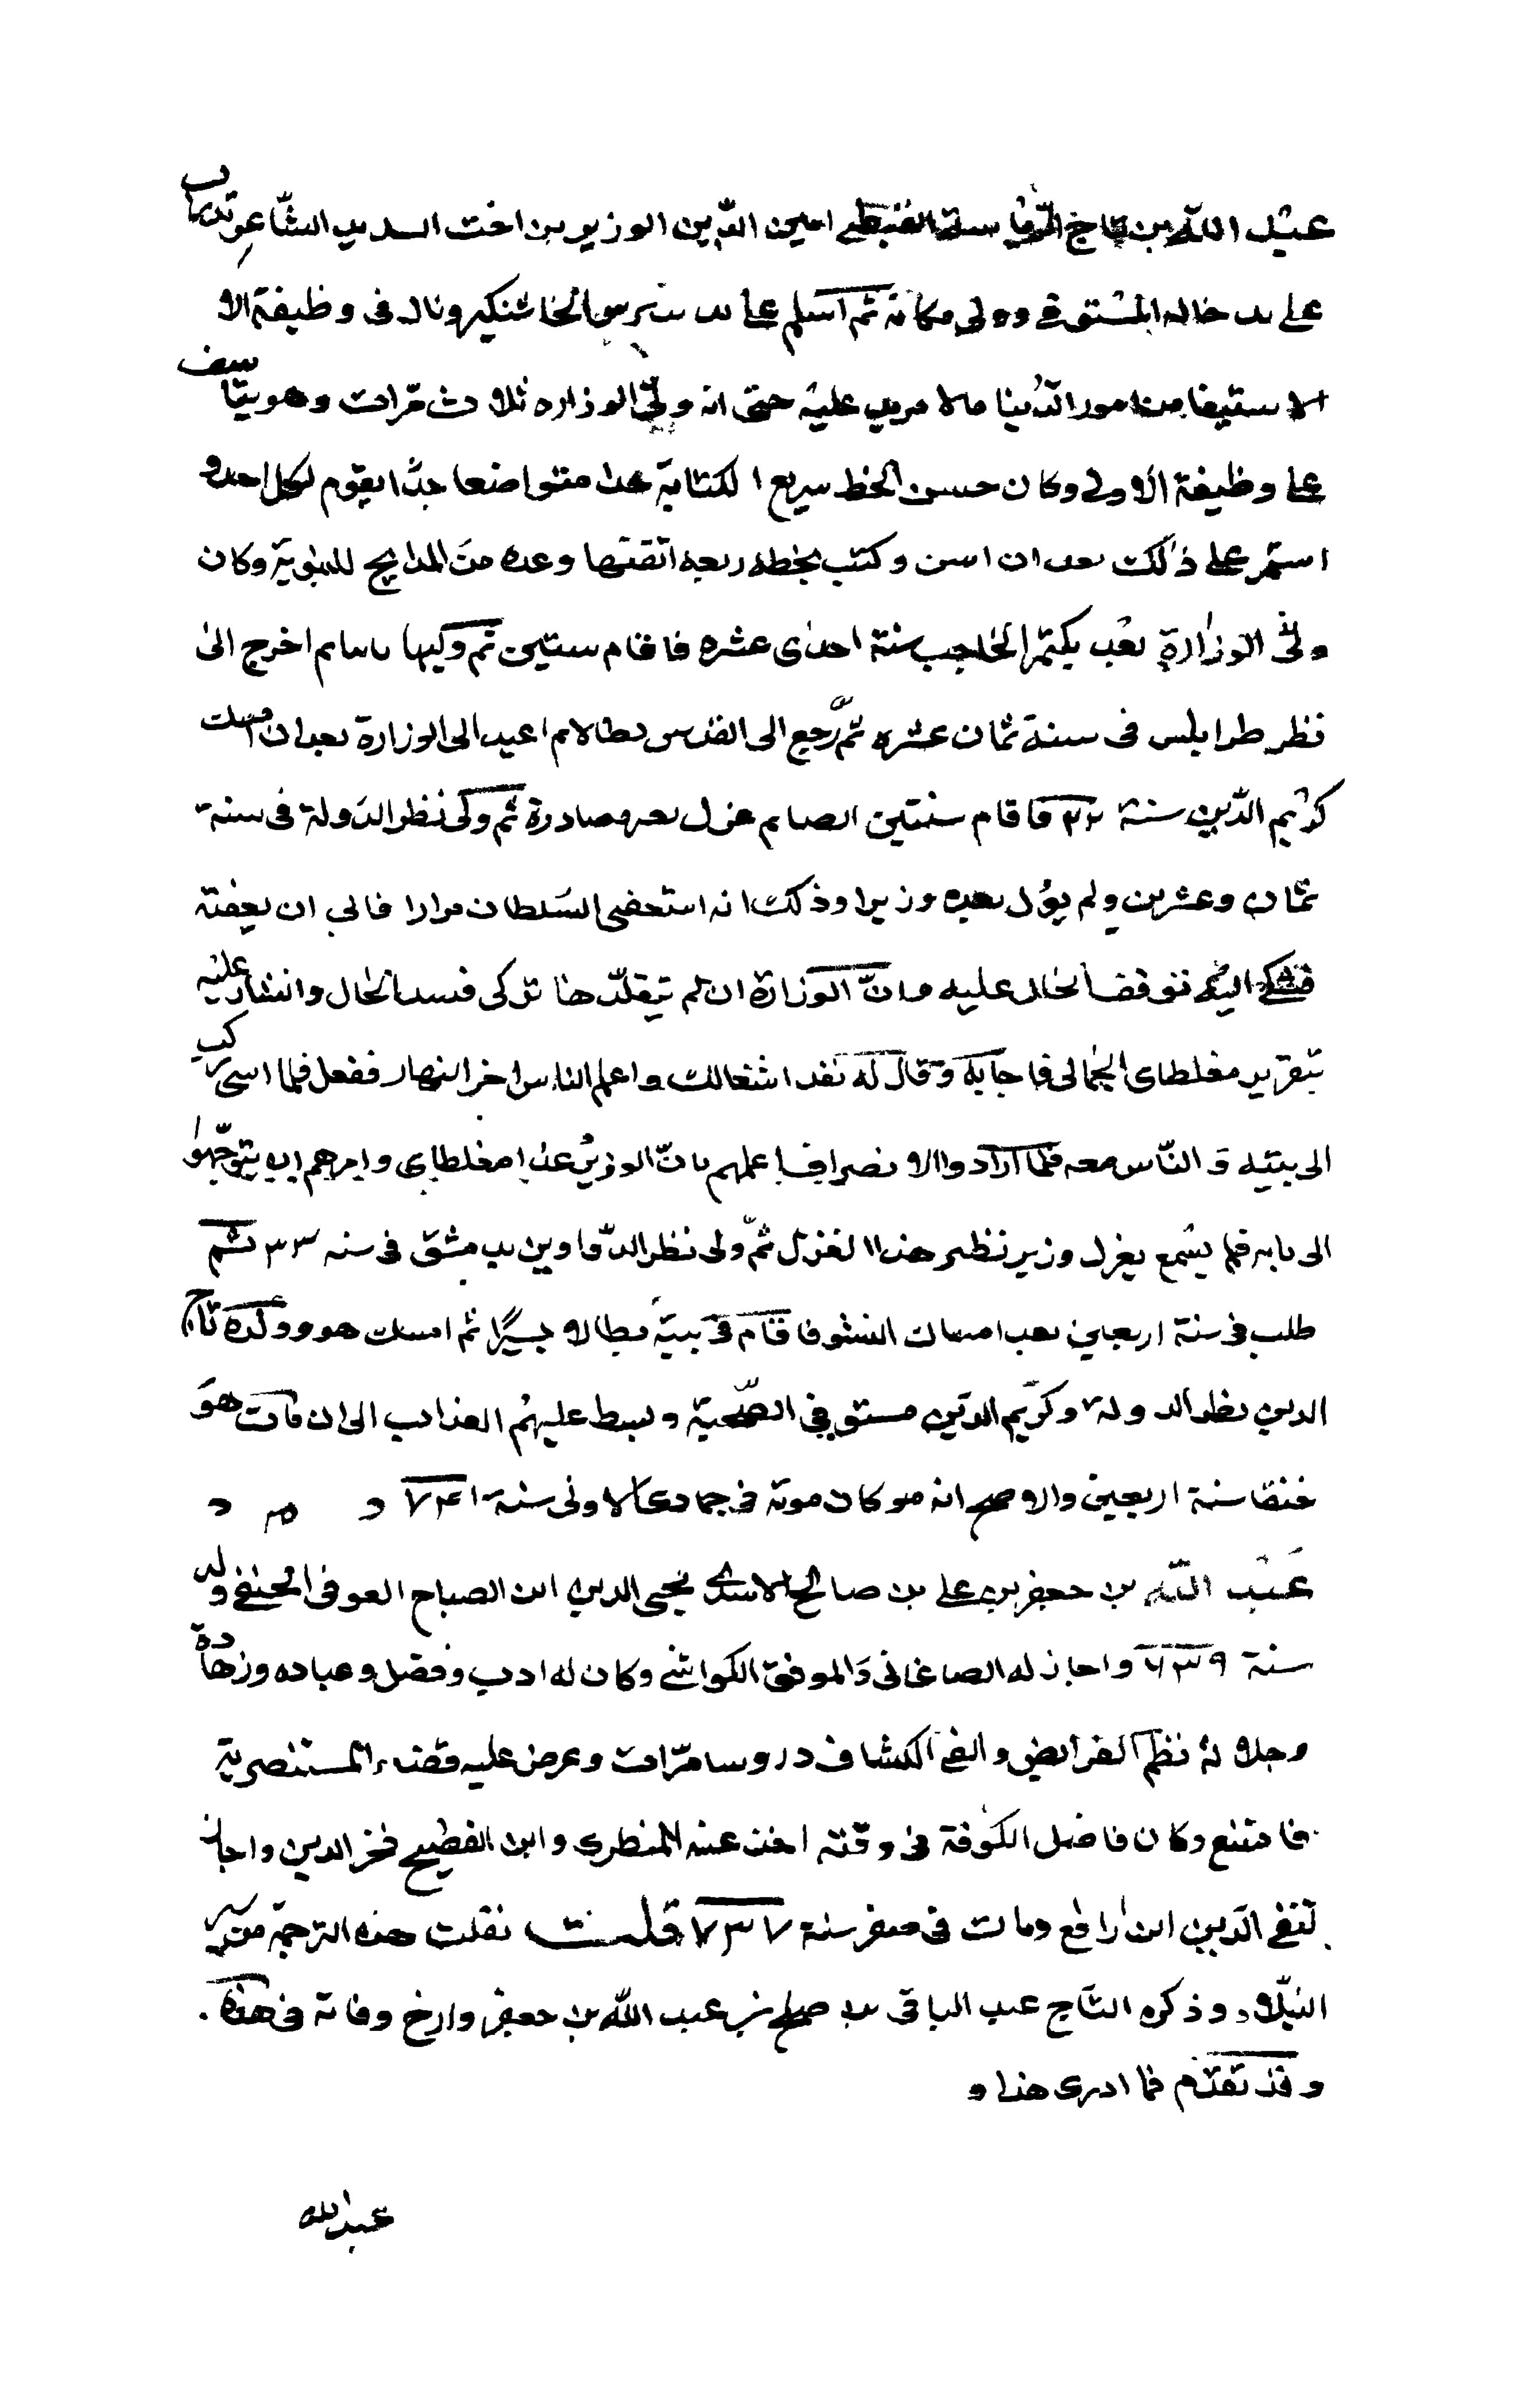 عبد الله بن تاج الرياسة القبطى امين الدين الوزير بن اخت السديد الشاعر تدرب
على يد خاله المستوفى وولى مكانه ثم اسلم على يد بيبرس الجاشنكير ونال فى وظيفة الا
الاستيفا من امور الدنيا مالا مزيد عليه حتى انه ولى الوزاره ثلاث مرات وهو يتاسف
على وظيفة الاولى وكان حسن الخط سريع الكتابة جدا متواضعا جدا يقوم لكل احد و
استمر على ذلك بعد ان اسن وكتب بخطه ربعه اتقنها وعده من المدايح النبوية وكان
ولى الوزارة بعد بكتمر الحاجب سنة احدى عشره فاقام سنتين ثم وليها ثم اخرج الى
نظر طرابلس فى سنة ثمان عشره ثم رجع الى القدس بطالا ثم اعيد الى الوزارة بعد ان امسك
كريم الدين سنة ٢٣ فاقام سنتين ايضا ثم عزل بغير مصادرة ثم ولى نظر الدولة فى سنة
ثمان وعشرين ولم يول بعده وزيرا وذلك انه استعفى السلطان مرارا فابى ان يعفيه
فشكى اليه توقف الحال عليه وان الوزارة ان لم يتقلدها تركى فسد الحال واشار عليه
بتقرير مغلطاى الجمالى فاجابه وقال له نفد اشغالك واعلم الناس اخر النهار ففعل فلما امسى ركب
الى بيته و الناس معه فلما ارادوا الانصراف اعلمهم بان الوزير غدا مغلطاى وامرهم ان يتوجهوا
الى بابه فلم يسمع بعزل وزير نظير هذا العزل ثم ولى نظر الدواوين بدمشق فى سنه ٣٣ ثم
طلب فى سنة اربعين بعد امساك النشو فاقام فى بيته بطالا يسيرا ثم امسك هو وولده تاج
الدين ناظر الدولة وكريم الدين مستوفى الصحبة وبسط عليهم العذاب الى ان مات هو
خنقا سنة اربعين والاصح انه كان موته فى جمادى الاولى سنة ٧٤١
عبد الله بن جعفر بن على بن صالح الاسدى محيى الدين ابن الصباح الكوفى الحنفى ولد
سنة ٦٣٩ واجاز له الصاغانى والموفق الكواشى وكان له ادب وفضل وعباده وزهادة
وجلالة نظم الفرايض والقى الكشاف دروسا مرات وعرض عليه قضاء المستنصرية
فامتنع وكان فاضل الكوفة فى وقته اخذ عنه المطرى وابن الفصيح فخر الدين واجاز
لتقى الدين ابن رافع ومات فى صفر سنة ٧٣٧ قلت نقلت هذه الترجمة من سير
النبلاء وذكره التاج عبد الباقى صالح بن عبد الله بن جعفر وارخ وفاته فى هذه
وقد تقدم فما ادرى هذا و
عبد الله